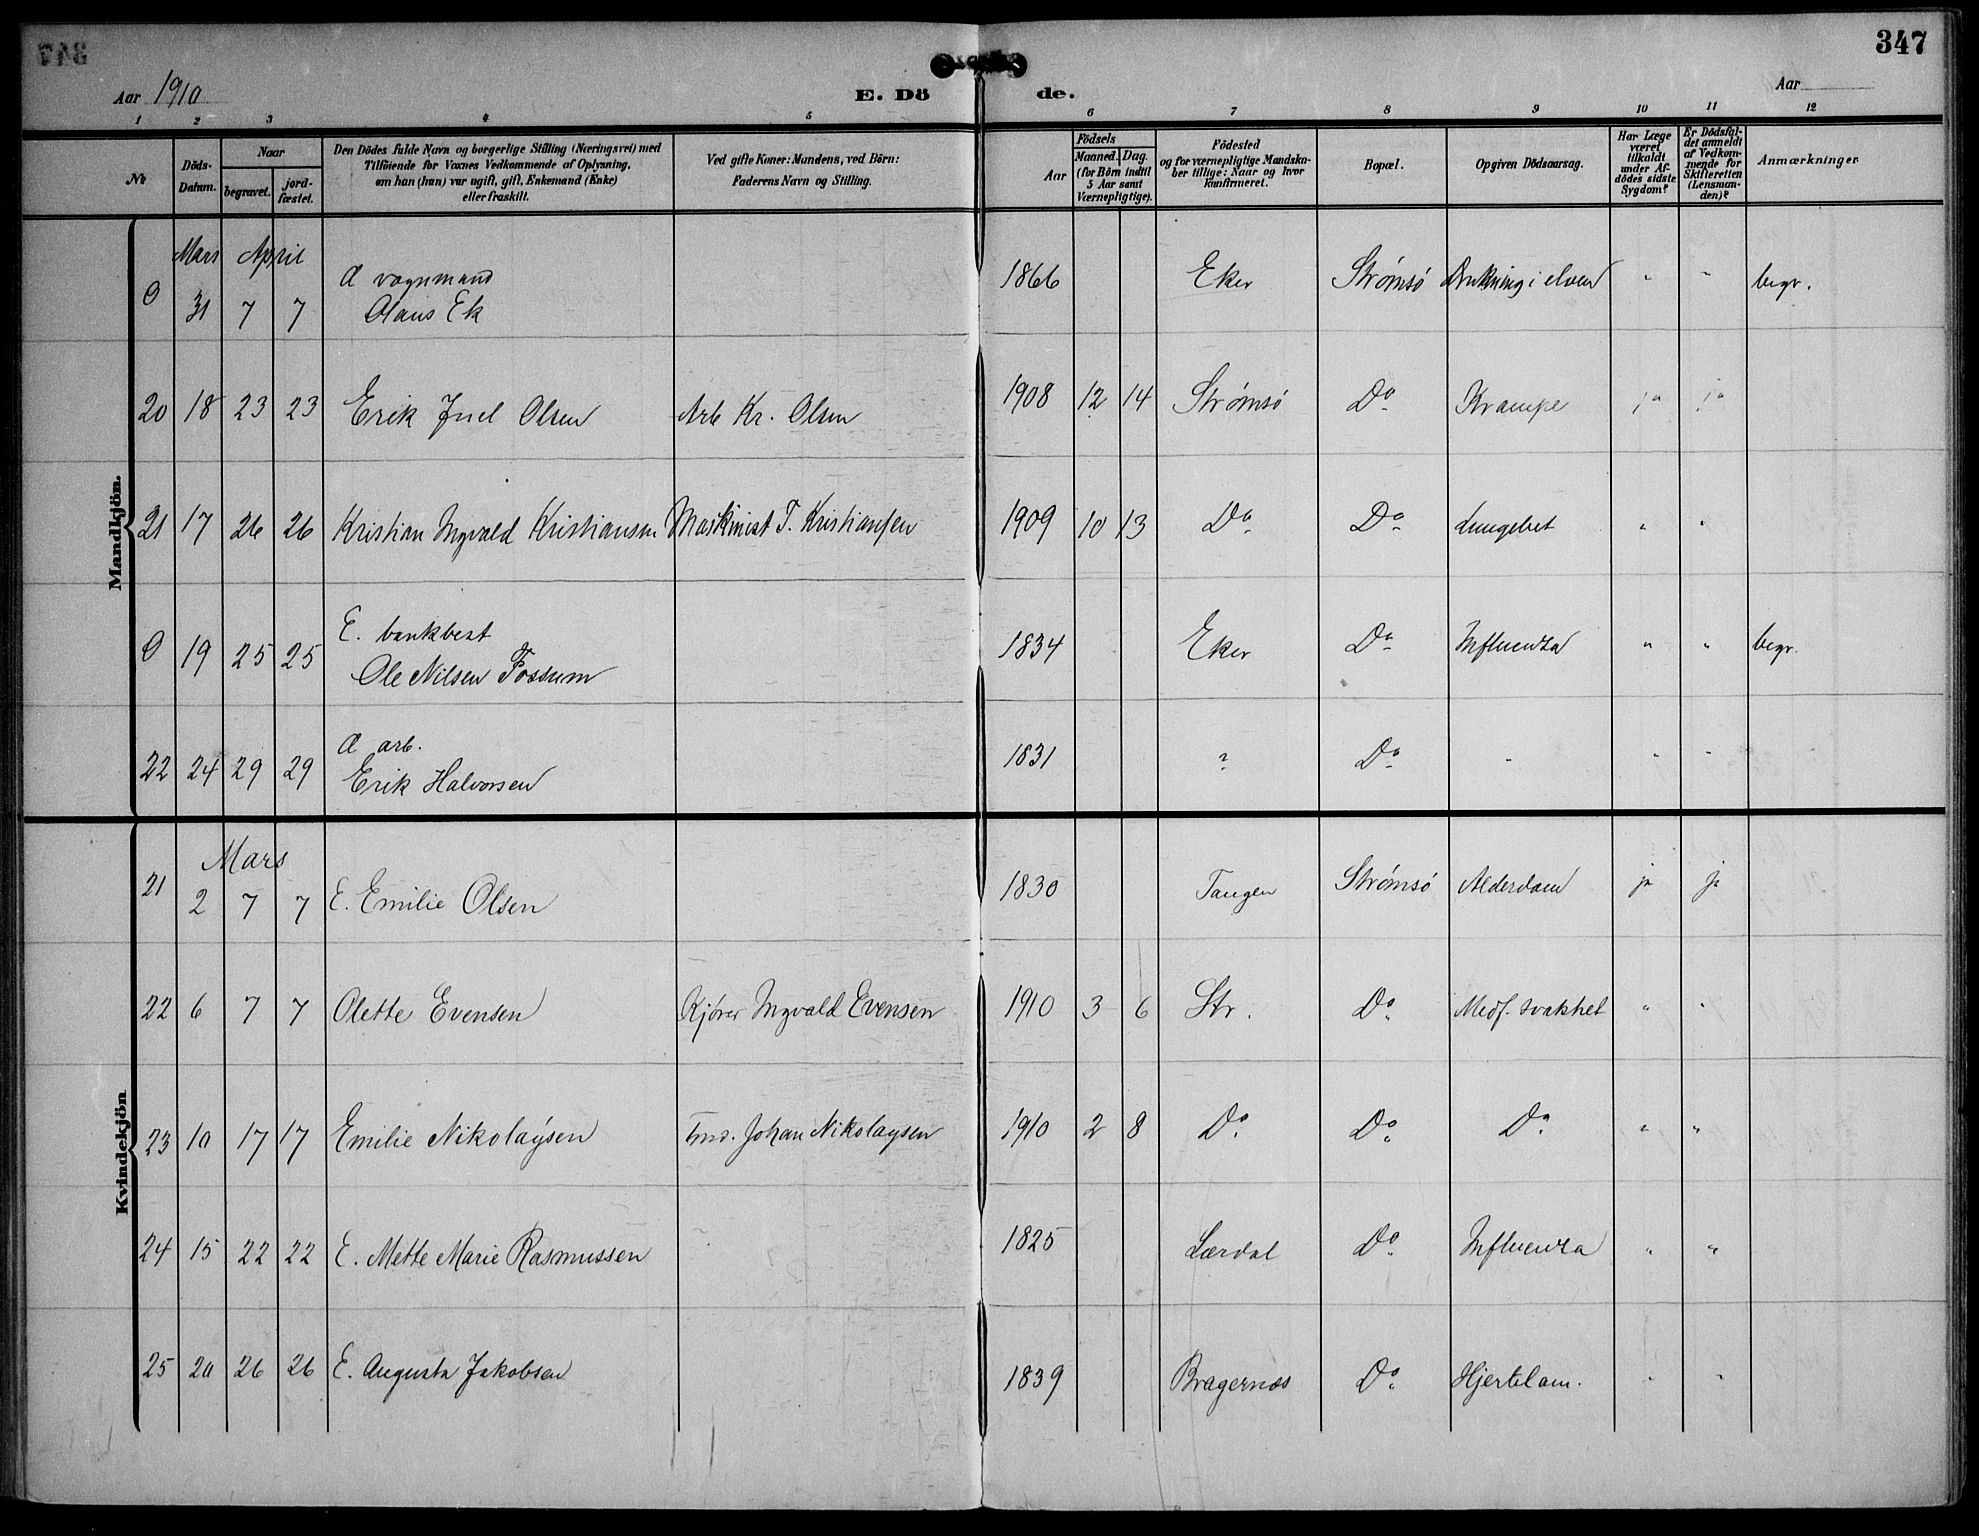 347
Aar 1910
E. Dö
de.
Aar
1 2 3 4 5 6 7 8 9 10 11 12
№
Döds-Datum.
Naar
begravet.
jord-fæstet.
Den Dödes fulde Navn og borgerlige Stilling (Næringsvei) med
Tilföiende for Voxnes Vedkommende af Oplysning,
om han (hun) var ugift, gift, Enkemand (Enke)
eller fraskilt.
Ved gifte Koner: Mandens, ved Börn:
Faderens Navn og Stilling.
Födsels
Aar
Maaned.
Dag.
(for Börn indtil
5 Aar samt
Værnepligtige).
Födested
og for værnepligtige Mandska-
ber tillige: Naar og hvor
konfirmeret.
Bopæl.
Opgiven Dödsaarsag.
Har Læge
været
tilkaldt
under Af-
dödes sidste
Sygdom?
Er Dödsfal-
det anmeldt
af Vedkom-
mende for
Skifteretten
(Lensman-
den)?
Anmærkninger
Mandkjön.
Mars April
0 31 7 7 vognmand
Olaus Ek 1866 Eker Strømsö Drukning i elven " " begr.
20 18 23 23 Erik Juel Olsen Arb Kr. Olsen 1908 12 14 Strømsö Do Krampe ja ja
21 17 26 26 Kristian Ingvald Kristiansen Maskinist T. Kristiansen 1909 10 13 Do Do Lungebet " "
0 19 25 25 E. bankbest
Ole Nilsen Fossum 1834 Eker Do Influenza " " begr.
22 24 29 29 arb.
Erik Halvorsen 1831 ? Do " " "
Kvindekjön
Mars
21 2 7 7 E. Emilie Olsen 1830 Tangen Strømsö Alderdom ja ja
22 6 7 7 Olette Evensen Kjører Ingvald Evensen 1910 3 6 Str. Do Medf. svakhet " "
23 10 17 17 Emilie Nikolaysen Johan Nikolaysen 1910 2 8 Do Do Do " "
24 15 22 22 E. Mette Marie Rasmussen 1825 Lærdal Do Influenza " "
25 20 26 26 E. Augusta Jakobsen 1839 Bragernæs Do Hjertelam. " "